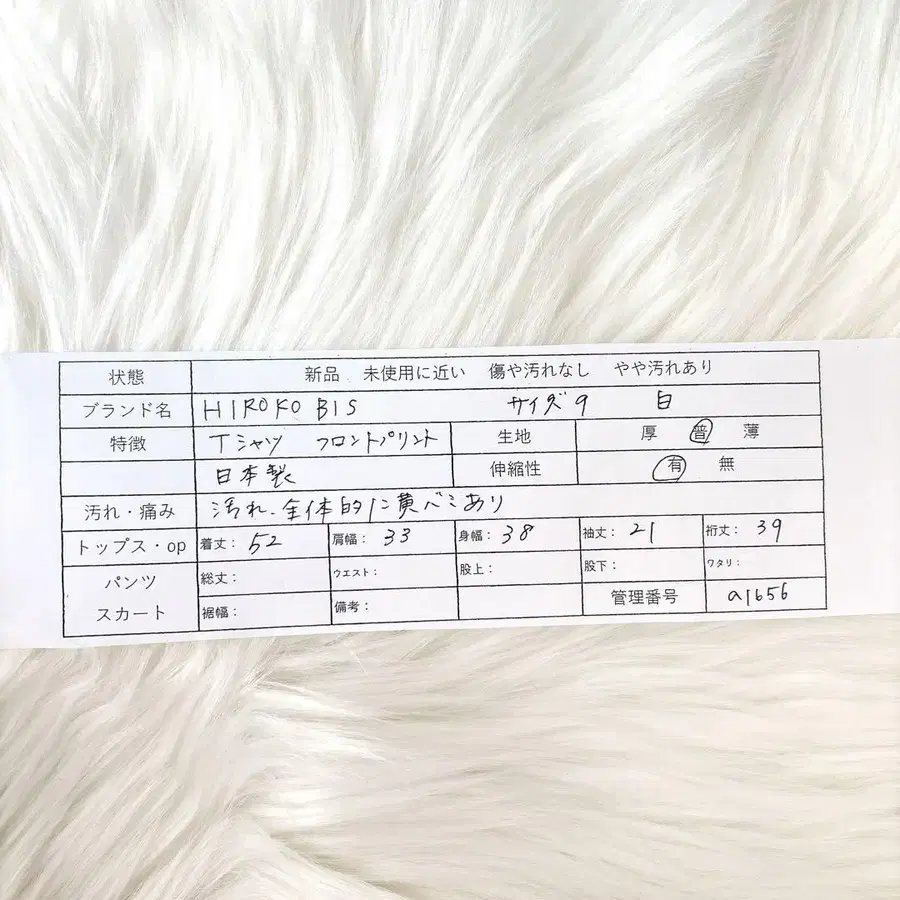 状態 新品 未使用に近い 傷や汚れなし やや汚れあり
ブランド名 HIROKO BIS サイズ9 白
特徴 Tシャツ フロントプリント 生地 厚 普 薄
日本製 伸縮性 有 無
汚れ・痛み 汚れ、全体的に黄ベミあり
トップス・op 着丈: 52 肩幅: 33 身幅: 38 袖丈: 21 裄丈: 39
パンツ 総丈: ウエスト: 股上: 股下: ワタリ:
スカート 裾幅: 備考: 管理番号 a1656